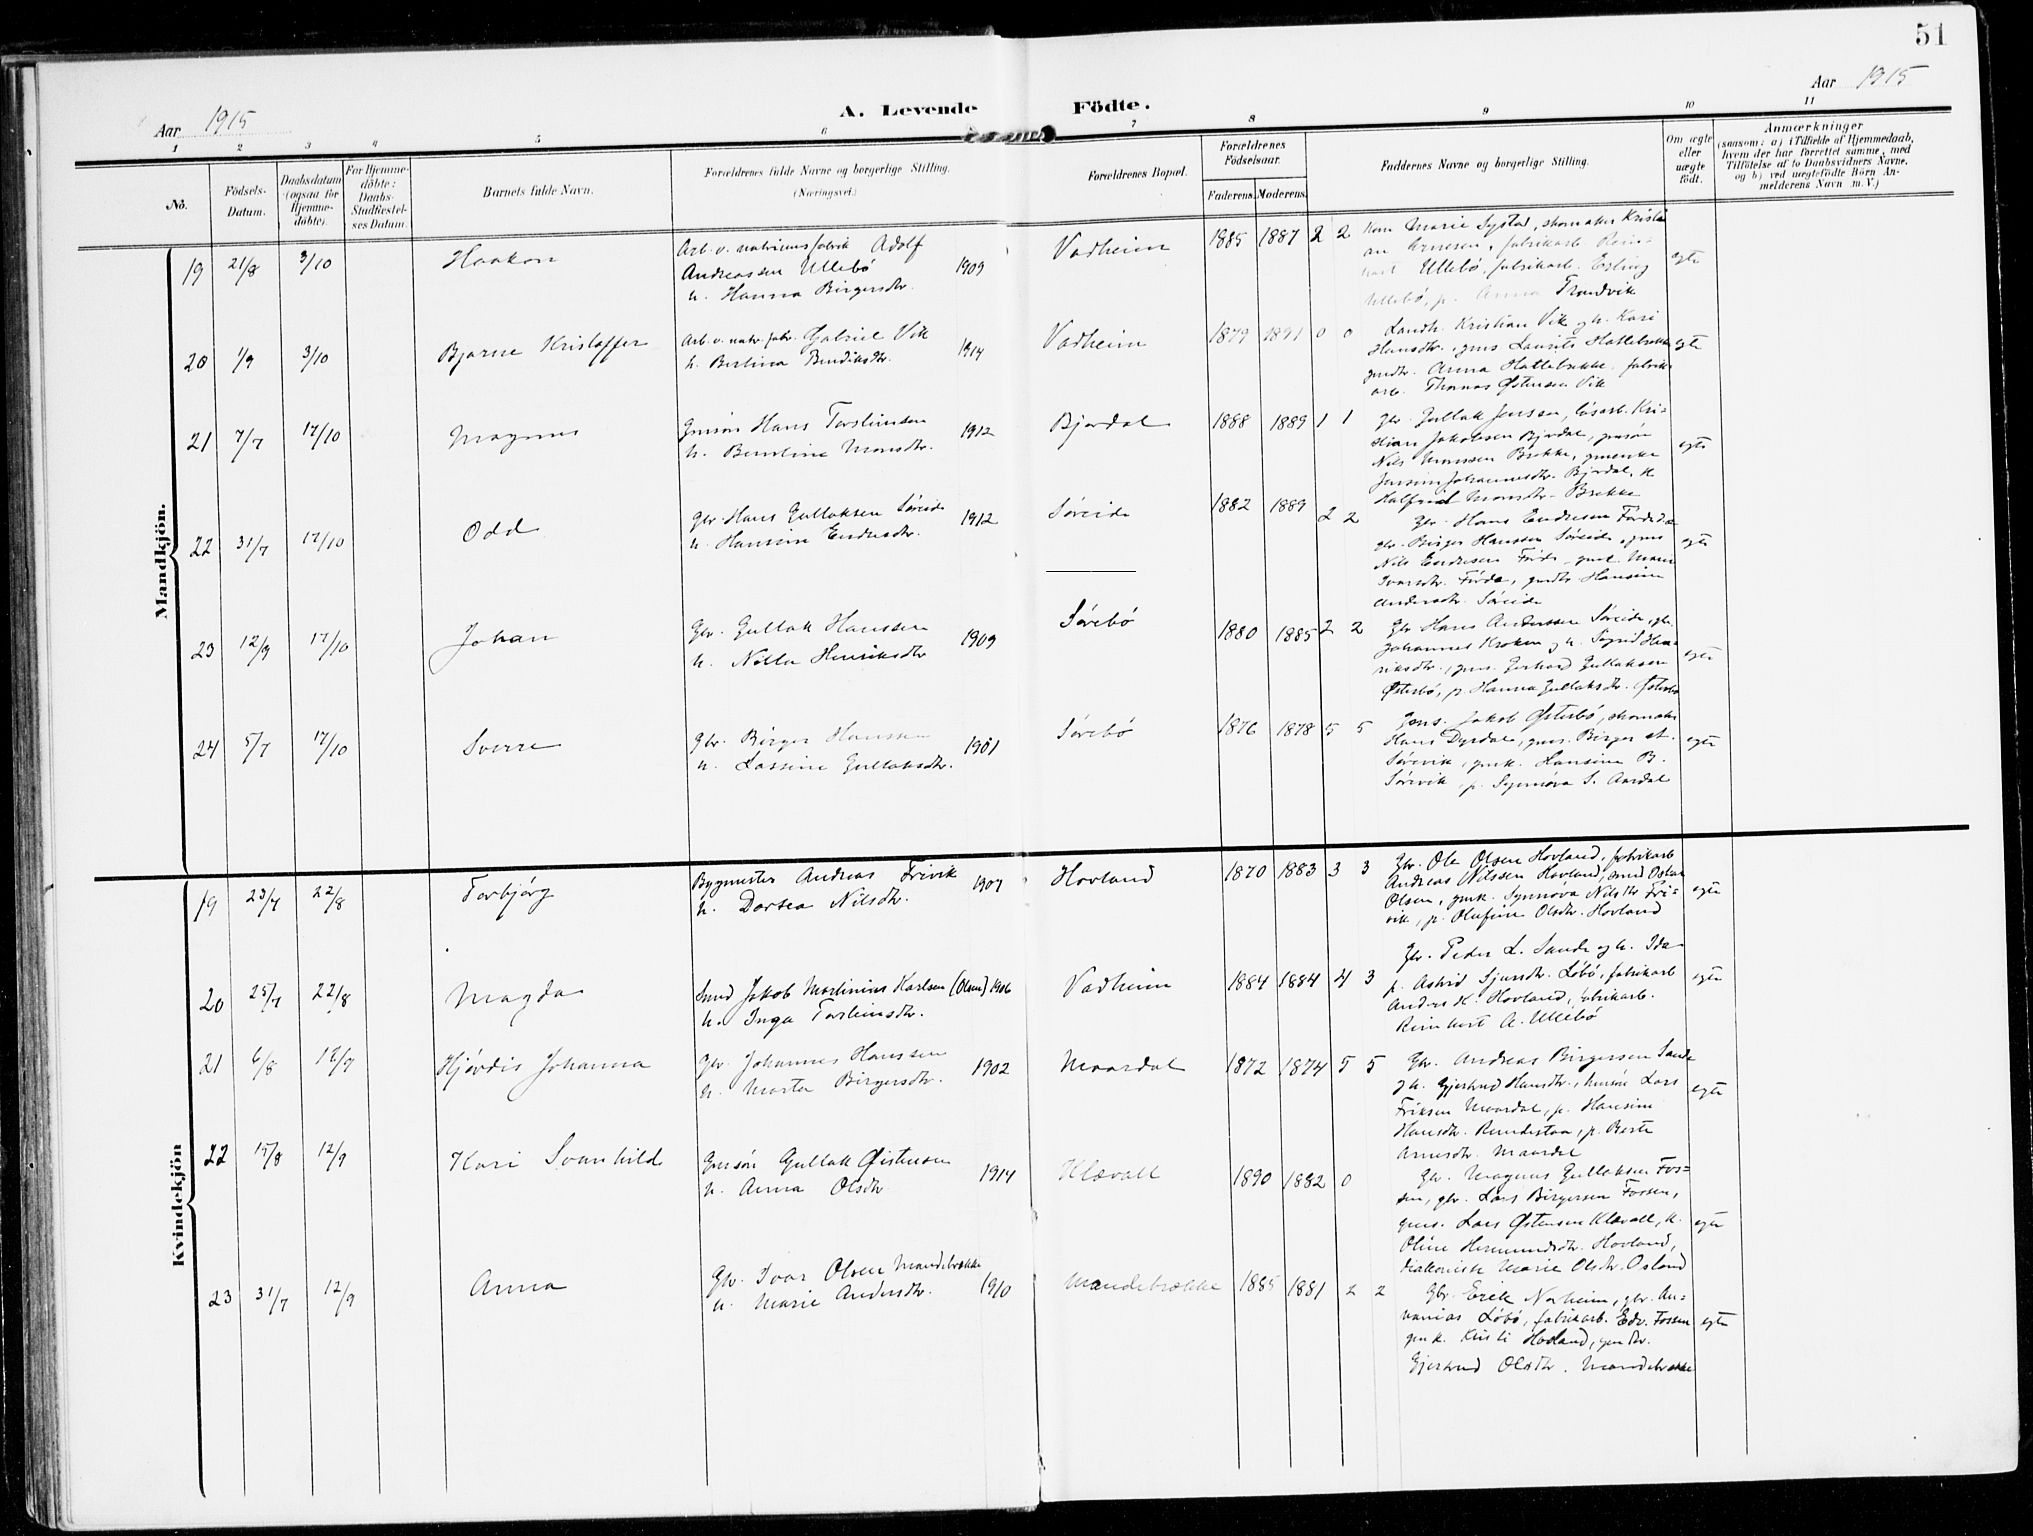 51
Aar 1915
Aar 1915
A. Levende Födte.
1 2 3 4 5 6 7 8 9 10 11
No.
Födsels-
Datum.
Daabsdatum
(ogsaa for
Hjemme-
döbte).
For Hjemme-
döbte:
Daabs-
Stadfæstel-
ses Datum.
Barnets fulde Navn.
Forældrenes fulde Navne og borgerlige Stilling.
(Næringsvei.)
Forældrenes Bopæl.
Forældrenes
Födselsaar.
Faderens. Moderens.
Faddernes Navne og borgerlige Stilling.
Om ægte
eller
uægte
födt.
Anmærkninger
(saasom: a) i Tilfælde af Hjemmedaab,
hvem der har forrettet samme, med
Tilföielse af to Daabsvidners Navne,
og b) ved uægtefödte Börn An-
melderens Navn m. V.)
Mandkjön.
19 21/8 3/10 Haakon
Arb. v. natriumsfabrik Adolf
Andreassen Ullebö
h. Hanna Birgersdtr. 1909
Vadheim 1885 1887 2 2
Kone Marie Systad, skomaker Kristi-
an Arnesen, fabrikarb. Rein-
hart Ullebö, fabrikarb. Erling
Ullebö, p. Anna Trandvik
egte
20 1/9 3/10 Bjarne Kristoffer
Arb. v. natr. fabr. Gabriel Vik
h. Bertina Bendiksdtr. 1914
Vadheim 1879 1891 0 0
Landh. Kristian Vik og h. Kari
Hansdtr., gms Laurits Hattebrekke
gmdtr. Anna Hattebrekke, fabrik-
arb. Thomas Østensen Vik
egte
21 7/7 17/10 Magnus
Gmsön Hans Torsteinsen
h. Berntine Monsdtr. 1912
Bjordal 1888 1889 1 1
Gbr. Gullak Jensen, lösarb. Kri-
stian Jakobsen Bjordal, gmsön
Nils Monssen Brekke, gmenke
Jensine Johannesdtr. Bjordal, k.
Halfrid Monsdtr. Brekke
egte
22 31/7 17/10 Odd
Gbr. Hans Gullaksen Söreide
h. Hansine Endresdtr. 1912
Söreide 1882 1889 2 2
Gbr. Hans Endresen Förde
gbr. Birger Hanssen Söreide, gms
Nils Endresen Förde, gmk. Mari
Ivarsdtr. Förde, gmdtr. Hansine
Andersdtr. Söreide
egte
23 12/9 17/10 Johan
Gbr. Gullak Hanssen
h. Nilla Henriksdtr. 1909
Sörebö 1880 1885 2 2
Gbr Hans Anderssen Söreide, gbr.
Johannes Kroken og h. Sigrid Hen-
riksdtr., gms. Gerhard Gullaksen
Østerbö, p. Hanna Gullaksdtr. Østerbö
egte
24 5/7 17/10 Sverre
Gbr. Birger Hanssen
h. Lassine Gullaksdtr. 1901
Sörebö 1876 1878 5 5
Gms. Jakob Østerbö, skomaker
Hans Dyrdal, gms. Birger A.
Sörevik, gmk. Hansine B.
Sörevik, p. Synnöva S. Aardal
egte
Kvindekjön
19 23/7 22/8 Torbjörg
Bygmester Andreas Frivik
h. Dortea Nilsdtr. 1907
Hovland 1870 1883 3 3
Gbr. Ole Olsen Hovland, fabrikarb
Andreas Nilssen Hovland, smed Oskar
Olsen, gmk. Synnöva Nilsdtr Fri-
vik, p. Olufine Olsdtr. Hovland
egte
20 25/7 22/8 Magda
Smed Jakob Martinius Karlsen (Olsen) 1906
h. Inga Torsteinsdtr.
Vadheim 1884 1884 4 3
Gbr. Peder L. Sande og h. Ida
p. Astrid Sjursdtr. Löbö, fabrikarb
Anders K. Hovland, fabrikarb.
Reinhart A. Ullebö
egte
21 6/8 12/9 Hjördis Johanna
Gbr. Johannes Hanssen
h. Marta Birgersdtr. 1902
Maardal 1872 1874 5 5
Gbr. Andreas Birgersen Sande
og h. Gjertrud Hansdtr., husön Lars
Eriksen Maardal, p. Hansine
Hansdtr. Rundestaa, p. Berte
Arnesdtr. Maardal
egte
22 15/8 12/9 Kari Svanhild
Gmsön Gullak Øistensen
h. Anna Olsdtr. 1914
Klævall 1890 1882 0
Gbr. Magnus Gullaksen Fos-
sen, gbr. Lars Birgersen Fossen,
gms. Lars Østensen Klævall, k.
Oline Hermundsdtr. Hovland,
diakonisse Marie Olsdtr. Osland
egte
23 31/7 12/9 Anna
Gbr. Ivar Olsen Mandebrække
h. Marie Andersdtr. 1910
Mandebrække 1885 1881 2 2
Gbr. Erik Norheim, gbr. An-
nanias Löbö, fabrikarb. Edv. Fossen
gmk. Kristi Hovland, gmdtr.
Gjertrud Olsdtr. Mandebrække
egte